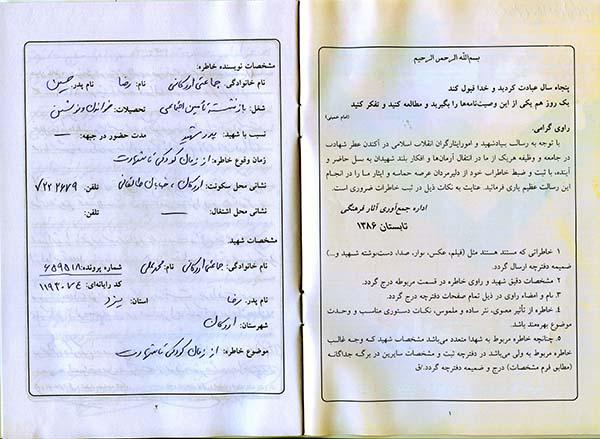 بسم‌الله الرحمن الرحیم
پنجاه سال عبادت کردید و خدا قبول کند
یک روز هم یکی از این وصیت‌نامه‌ها را بگیرید و مطالعه کنید و تفکر کنید
(امام خمینی)
راوی گرامی:
با توجه به رسالت بنیاد شهید و امور ایثارگران انقلاب اسلامی در آکندن عطر شهادت
در جامعه و وظیفه هریک از ما در انتقال آرمان‌ها و افکار بلند شهیدان به نسل حاضر و
آینده، با ثبت و ضبط خاطرات خود از دلیرمردان عرصه حماسه و ایثار ما را در انجام
این رسالت عظیم یاری فرمائید. عنایت به نکات ذیل در ثبت خاطرات ضروری است.
اداره جمع‌آوری آثار فرهنگی
تابستان ۱۳۸۶
۱ خاطراتی که مستند هستند مثل (فیلم، عکس، نوار، صدا، دست‌نوشته شهید و...)
ضمیمه دفترچه ارسال گردد.
۲ مشخصات دقیق شهید و راوی خاطره در قسمت مربوطه درج گردد.
۳. نام و امضاء راوی در ذیل تمام صفحات دفترچه درج گردد.
۴. خاطره از تأثیر معنوی، نثر ساده و ملموس، نکات دستوری مناسب و وحدت
موضوع بهره‌مند باشد.
۵. چنانچه خاطره مربوط به شهدا متعدد می‌باشد مشخصات شهید که وجه غالب
خاطره مربوط به ولی می‌باشد در دفترچه ثبت و مشخصات سایرین در برگه جداگانه
(مطابق فرم مشخصات) درج و ضمیمه دفترچه گردد./ق
۱
مشخصات نویسنده خاطره:
نام خانوادگی: جماعتی اردکانی نام: رضا نام پدر: حسین
شغل: بازنشسته تأمین اجتماعی تحصیلات: خواندن و نوشتن
نسبت با شهید: پدر شهید مدت حضور در جبهه: —
زمان وقوع خاطره: از زمان کودکی تا شهادت
نشانی محل سکونت: اردکان، خیابان طالقانی تلفن: ۷۲۲۲۶۷۹
نشانی محل اشتغال: — تلفن:
مشخصات شهید:
نام خانوادگی: جماعتی اردکانی نام: محمدعلی شماره پرونده: ۶۵۹۵۱۸
کد رایانه‌ای: ۱۱۹۳۰۷۴
نام پدر: رضا استان: یزد
شهرستان: اردکان
موضوع خاطره: از زمان کودکی تا شهادت
۲